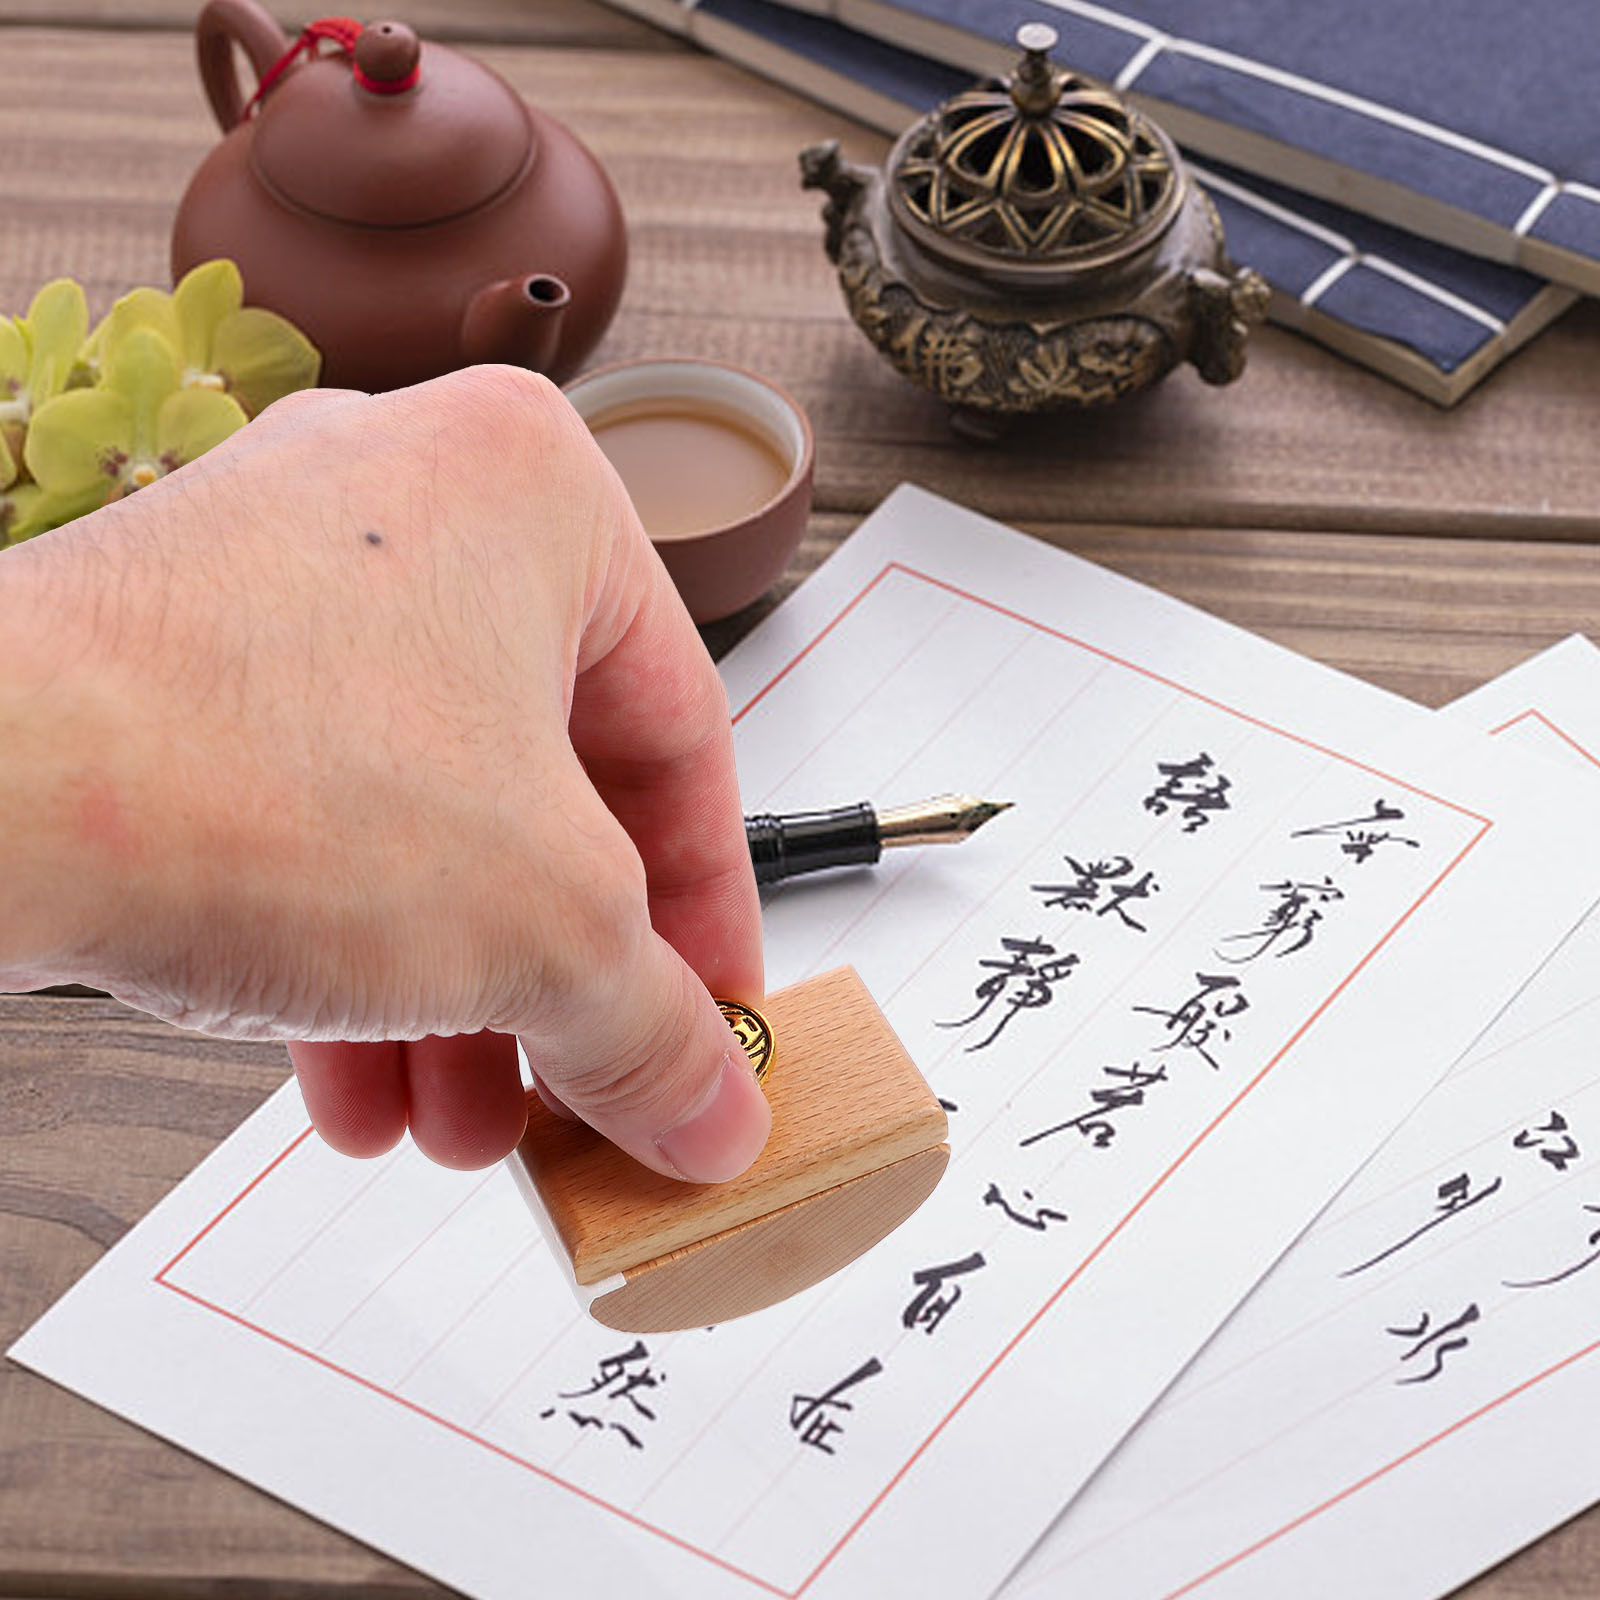 無窮般若心自在
語默靜
然
水
江月
佛